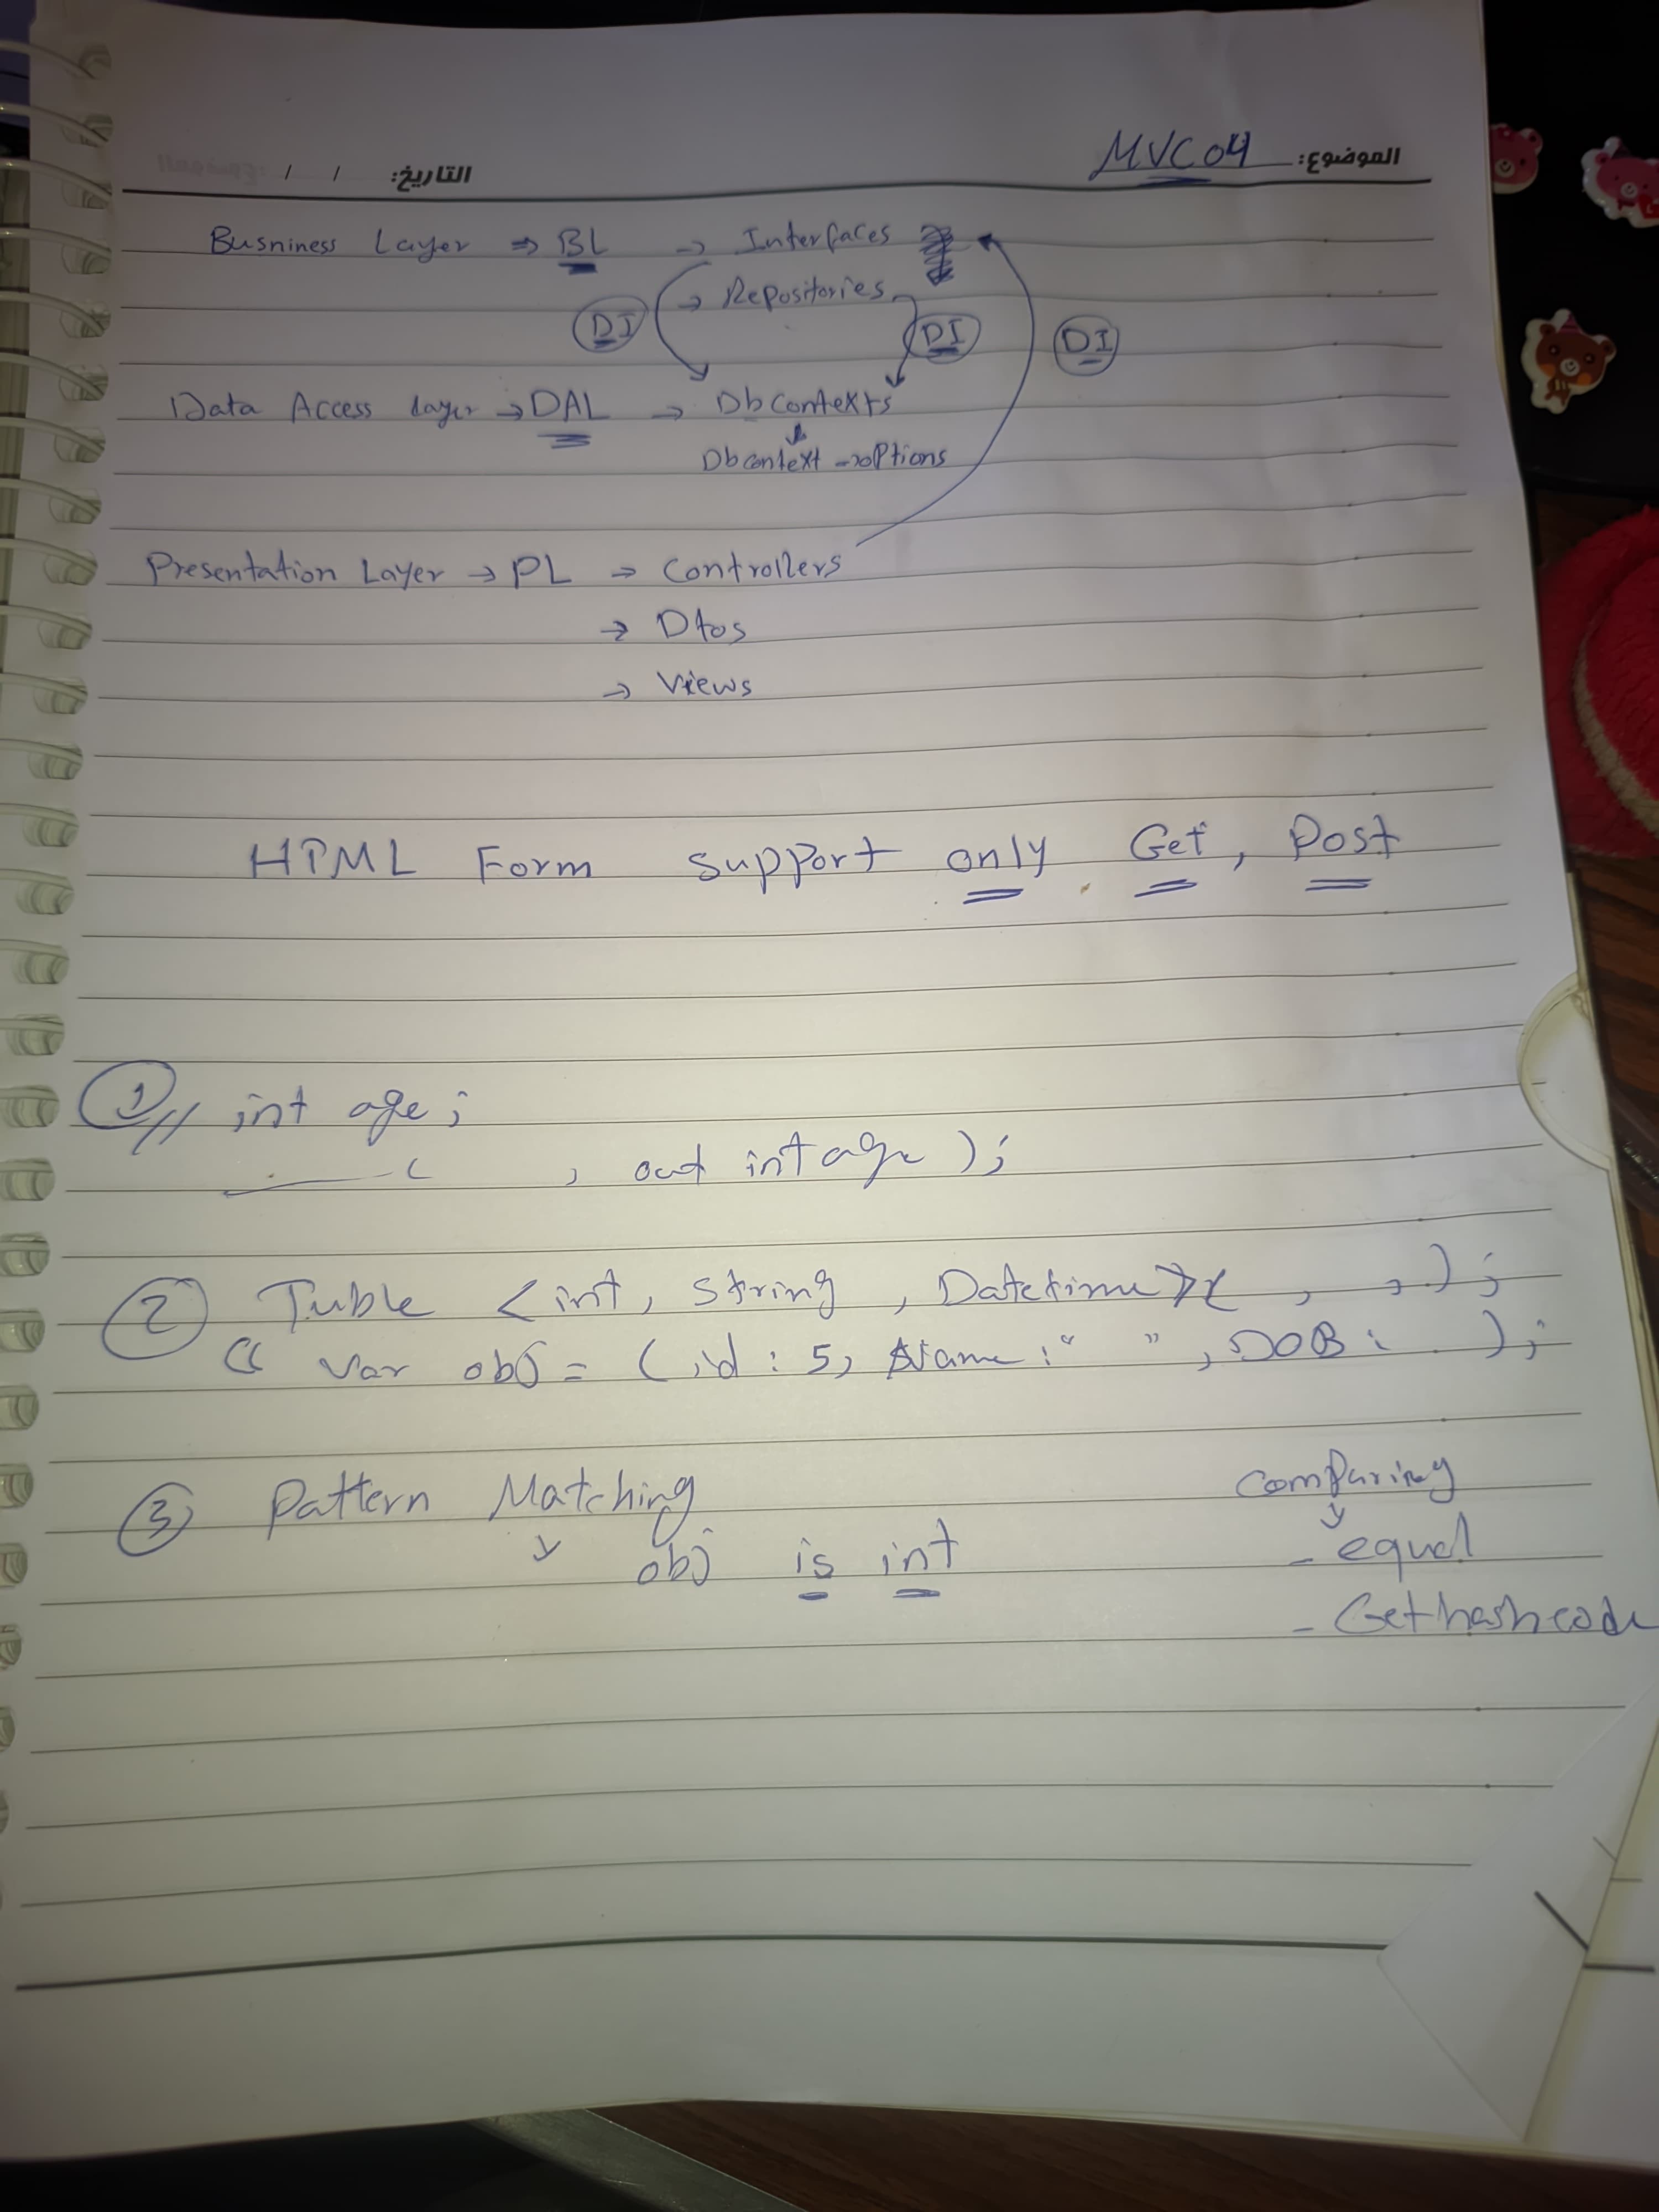 الموضوع: MVC04
التاريخ: / /
Busniness Layer ⇒ BL → Interfaces
→ Repositories
DI DI DI
Data Access layer → DAL → Dbcontexts
Dbcontext → options
Presentation Layer → PL → Controllers
→ Dtos
→ Views
HTML Form support only Get, Post
① // int age;
( , out int age );
② Tuble <int, string, Datetime>( , , );
(( var obj = (id : 5, Name : " ", DOB : );
③ Pattern Matching
obj is int
Comparing
- equal
- Gethashcode